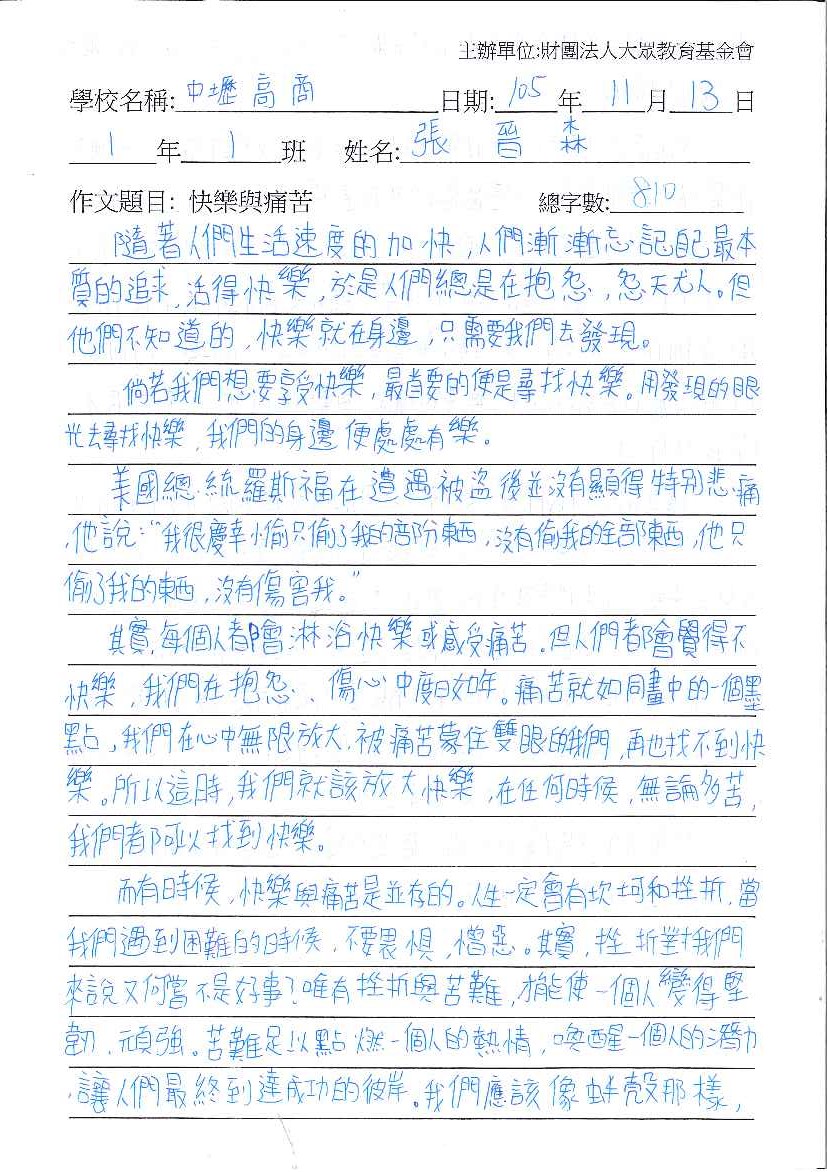 主辦單位:財團法人大眾教育基金會
學校名稱:中壢高商 日期:105年11月13日
1年1班 姓名:張晉森
作文題目: 快樂與痛苦 總字數:810
隨著人們生活速度的加快,人們漸漸忘記自己最本
質的追求,活得快樂,於是人們總是在抱怨,怨天尤人。但
他們不知道的,快樂就在身邊,只需要我們去發現。
倘若我們想要享受快樂,最首要的便是尋找快樂。用發現的眼
光去尋找快樂,我們的身邊便處處有樂。
美國總統羅斯福在遭遇被盜後並沒有顯得特別悲痛
,他說:“我很慶幸小偷只偷了我的部份東西,沒有偷我的全部東西,他只
偷了我的東西,沒有傷害我。”
其實,每個人都會淋浴快樂或感受痛苦。但人們都會覺得不
快樂,我們在抱怨、傷心中度日如年。痛苦就如同畫中的一個墨
點,我們在心中無限放大,被痛苦蒙住雙眼的我們,再也找不到快
樂。所以這時,我們就該放大快樂,在任何時候,無論多苦,
我們都可以找到快樂。
而有時候,快樂與痛苦是並存的。人生一定會有坎坷和挫折,當
我們遇到困難的時候,不要畏懼,憎惡。其實,挫折對我們
來說又何嘗不是好事?唯有挫折與苦難,才能使一個人變得堅
韌、頑強。苦難足以點燃一個人的熱情,喚醒一個人的潛力
,讓人們最終到達成功的彼岸。我們應該像蚌殼那樣,